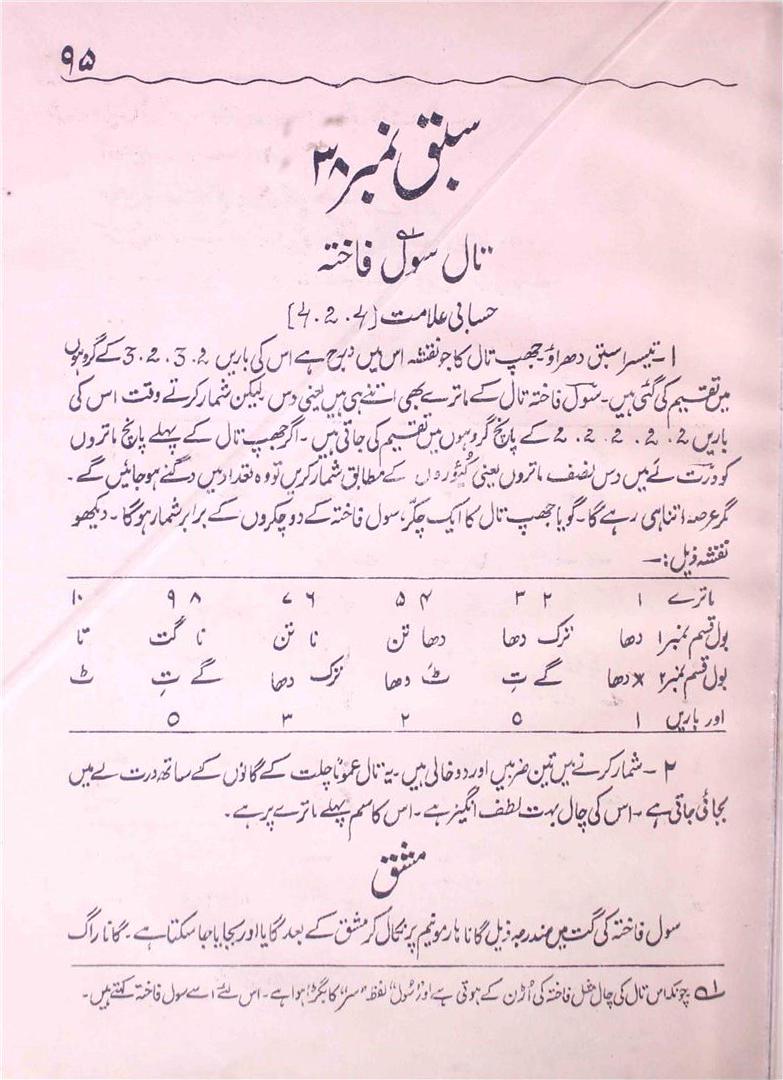 ۹۵
سبق نمبر ۳۸
تال سول فاختہ
حسابی علامت [4.2.4]
۱- تیسرا سبق دھراؤ۔ جھپ تال کا جو نقشہ اس میں درج ہے اس کی باریں 3.2.3.2 کے گروہوں
میں تقسیم کی گئی ہیں۔ سول فاختہ تال کے ماترے بھی اتنے ہی ہیں یعنی دس لیکن شمار کرتے وقت اس کی
باریں 2.2.2.2.2 کے پانچ گروہوں میں تقسیم کی جاتی ہیں۔ اگر جھپ تال کے پہلے پانچ ماتروں
کو درت لے میں دس نصف ماتروں یعنی کے مطابق شمار کریں تو وہ تعداد میں دگنے ہو جائیں گے۔
مگر عرصہ اتنا ہی رہے گا۔ گویا جھپ تال کا ایک چکر، سول فاختہ کے دو چکروں کے برابر شمار ہوگا۔ دیکھو
نقشہ ذیل:۔
ماترے ۱ ۲ ۳ ۴ ۵ ۶ ۷ ۸ ۹ ۱۰
بول قسم نمبر۱ دھا ترک دھا دھا تن نا تن نا گت تا
بول قسم نمبر۲ * دھا گے تِ ٹ دھا ترک دھا گے تِ ٹ
اور باریں ۱ ٥ ۲ ۳ ٥
۲- شمار کرنے میں تین ضربیں اور دو خالی ہیں۔ یہ تال عموماً چلت کے گانوں کے ساتھ درت لے میں
بجائی جاتی ہے۔ اس کی چال بہت لطف انگیز ہے۔ اس کا سم پہلے ماترے پر ہے۔
مشق
سول فاختہ کی گت میں مندرجہ ذیل گانا ہارمونیم پر نکال کر مشق کے بعد گایا اور بجایا جا سکتا ہے۔ گانا راگ
۱؎ چونکہ اس تال کی چال مثل فاختہ کی اڑن کے ہوتی ہے اور "سول" لفظ "سر" کا بگڑا ہوا ہے۔ اس لئے اسے سول فاختہ کہتے ہیں۔